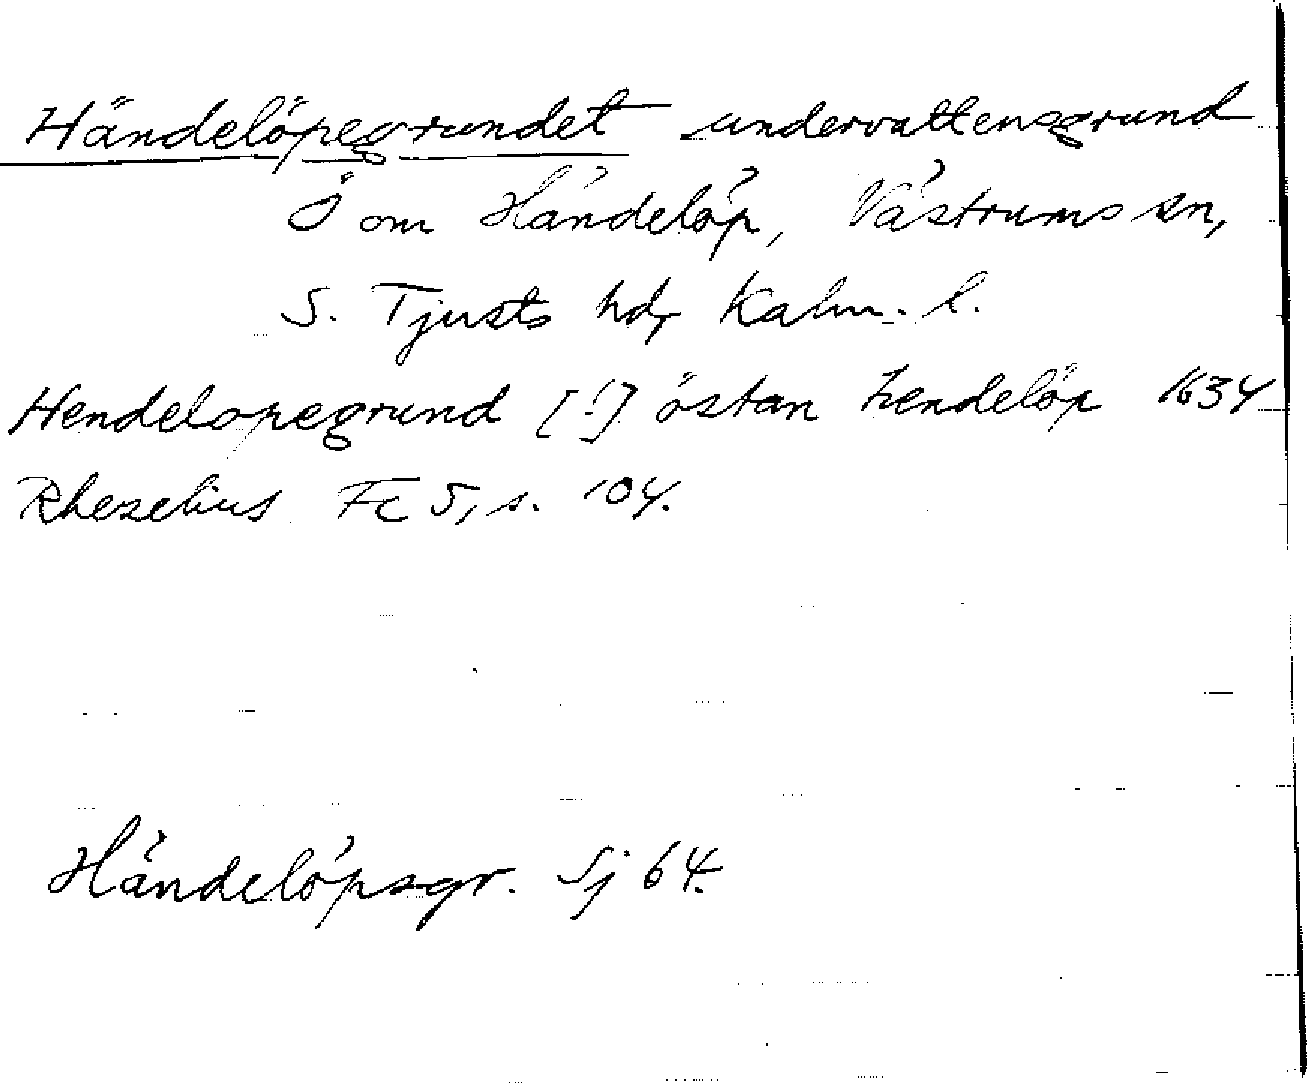 Händelöpegrundet undervattensgrund
Ö om Händelöp, Västrums sn,
S. Tjusts hd, Kalm. l.
Hendelopegrund [!] östan hendelöp 1634
Rhezelius Fc 5, s. 104.
Händelöpsgr. Sj 64.